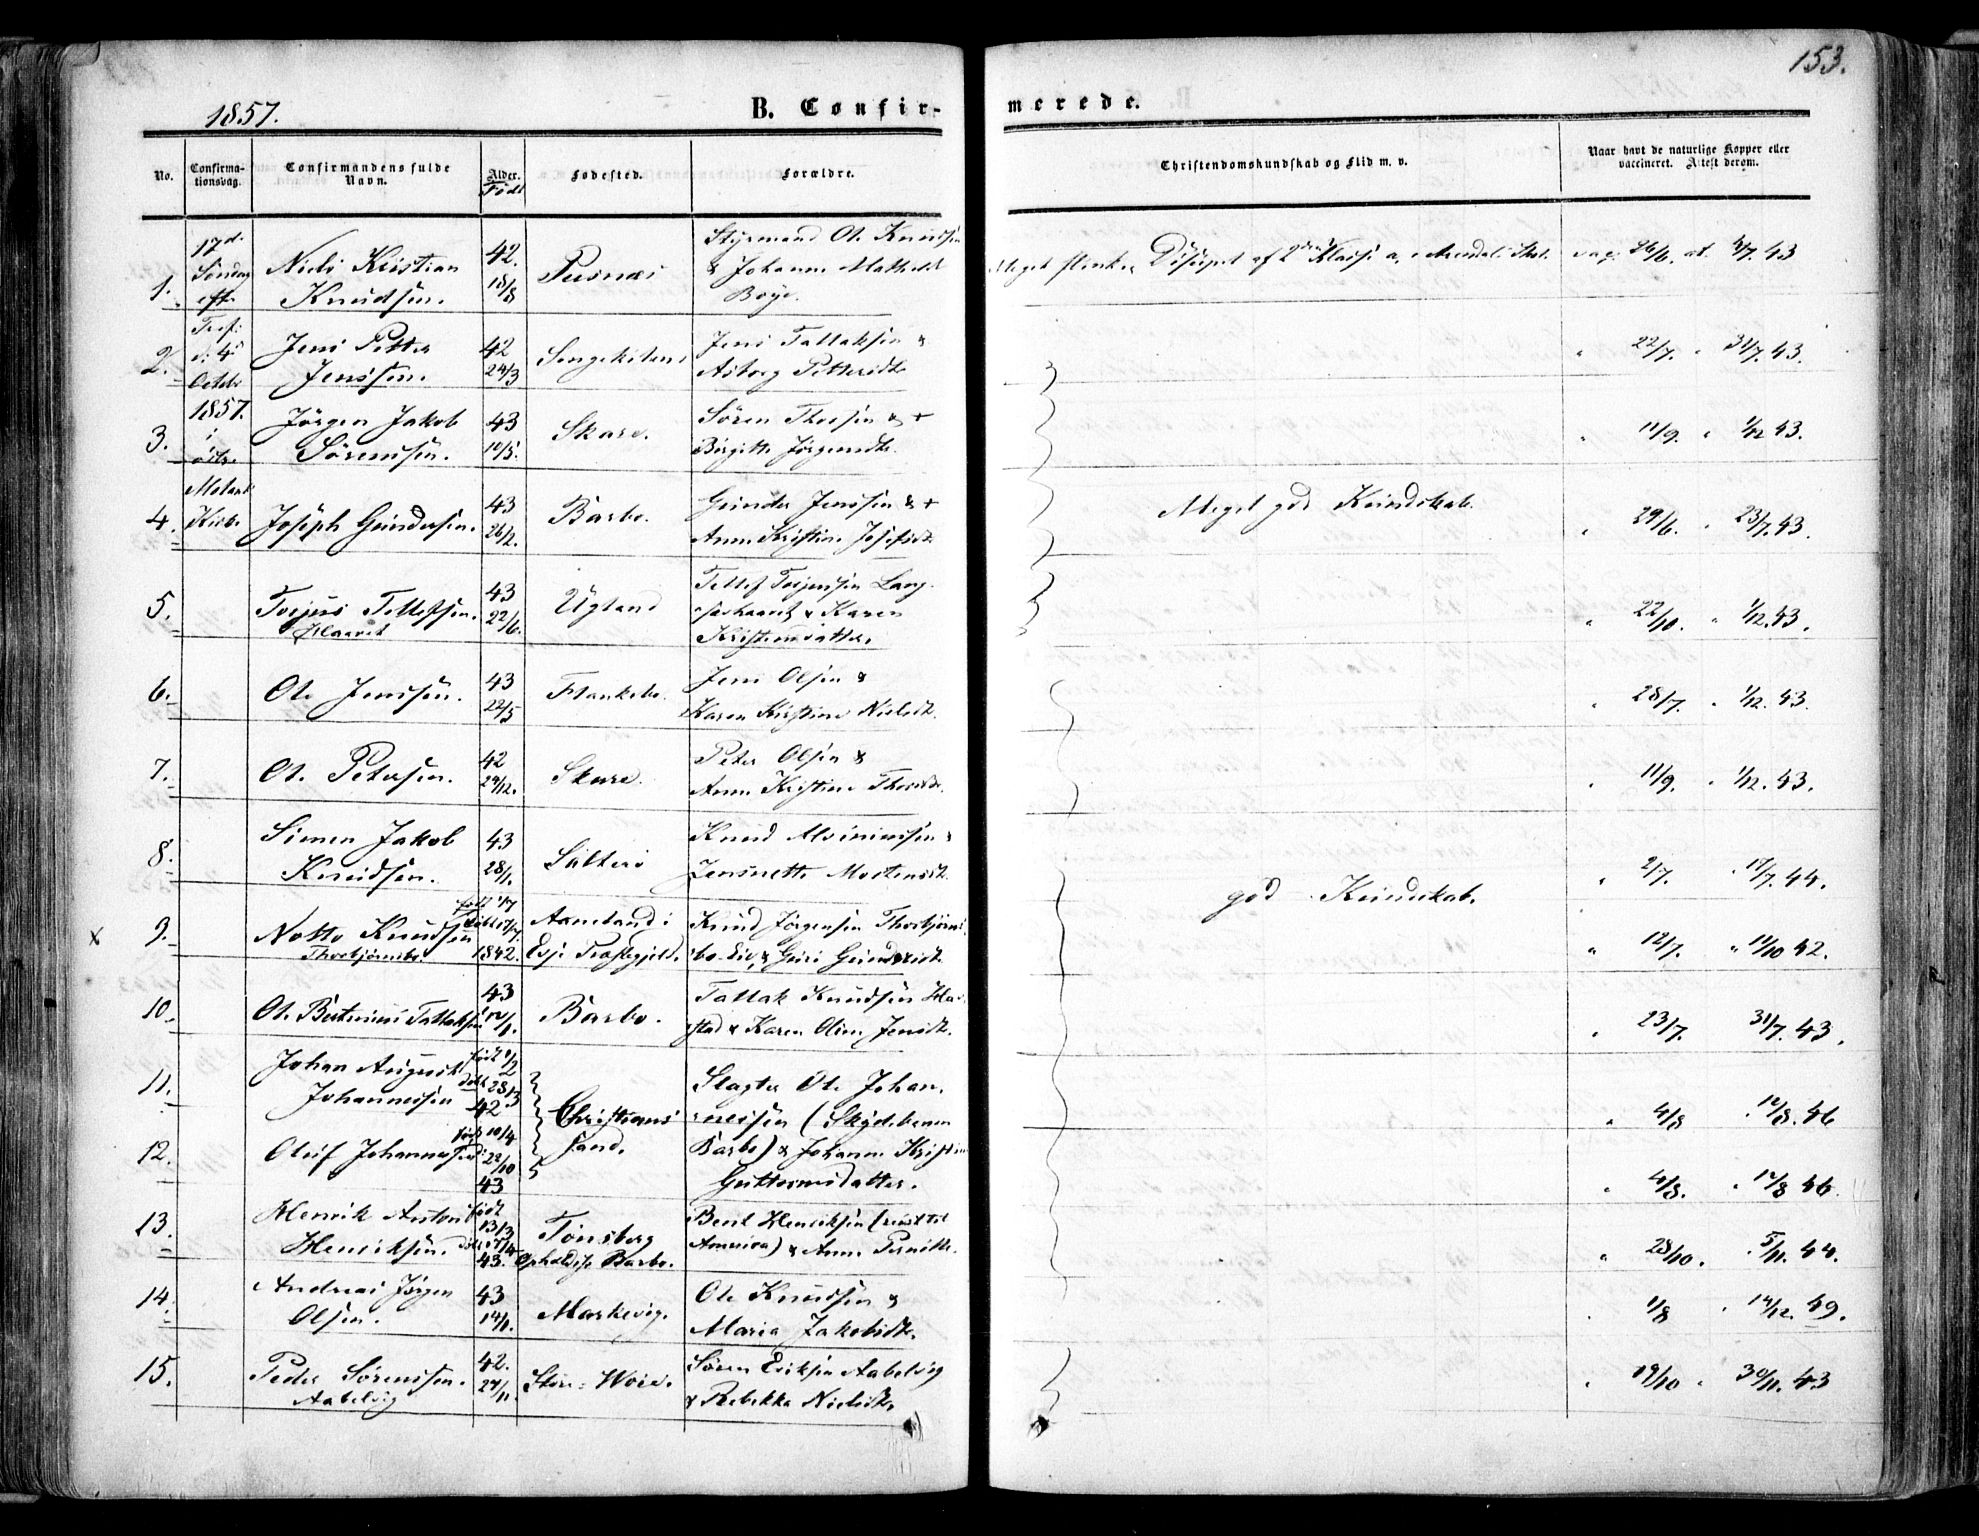 153.
1857.
B. Confir-
merede.
No.
Confirma-
tionsdag.
Confirmandens fulde
Navn.
Alder.
Født
Fødested.
Forældre.
Christendomskundskab og Flid m. v.
Naar havt de naturlige Kopper eller
vaccineret. Attest derom.
17d.
Søndag
eft.
Tref:
d. 4d
Octobr
1857.
i
østr.
Molands
Kirke
1. Niels Kristian
Knudsen.
42.
18/8
Pusnæs
Styrmand Ole Knudsen
& Johanne Mathilde
Boye.
Meget flink,
Klasse
vac. 26/6. at. 4/7. 43
2. Jens Petter
Jenssen.
42
24/3
Songekilens
Jens Tallaksen &
Asborg Pettersdtr
" 22/7. " 31/7. 43.
3. Jørgen Jakob
Sørenssen.
43
10/5.
Skare.
Søren Thorsen & +
Birgitte Jørgensdtr.
" 11/9. " 1/12 43.
4. Joseph Gundersen.
43
26/2.
Barbo.
Gunder Jenssen & +
Anne Kristine Josefsdtr
Meget god Kundskab.
" 29/6. " 23/7. 43.
5. Terjus Tellefsen.
43
22/6.
Ugland
Tellef Terjussen Lang-
& Karen
Kristensdatter.
" 22/10. " 1/12. 43.
6. Ole Jenssen.
43
22/5
Flankebo.
Jens Olsen &
Karen Kristine Nielsdtr.
" 28/7. " 1/12. 43.
7. Ole Petersen.
42
29/12.
Skare.
Peter Olsen &
Anne Kristine Thorsdtr.
" 11/9. " 1/12. 43.
8. Simen Jakob
Knudsen.
43
28/1.
Salterø
Knud
Jensinette Mortensdtr.
god Kundskab.
" 2/7. " 17/7. 44.
x
9. Notto Knudsen
Thorbjørnsbo.
født 1/7
døbt 17/7.
1842.
Aamland i
Evje Præstegjeld.
Knud Jørgensen Thorbjørns-
bo-Eie, & Guri Gundersdtr.
" 12/7. " 11/10 42.
10. Ole Bertinius Tallaksen
43
12/1.
Barbo.
Tallak Knudsen Har-
stad & Karen Oline Jensdtr.
" 23/7. 31/7. 43.
11. Johan August
Johannessen
født 1/2
døbt 28/3
42
Christians
sand.
Slagter Ole Johan-
nessen (Skydebanen
Barbo) & Johanne Kristine
Guttormsdatter.
" 4/8 " 12/8. 46
12. Oluf Johannessen
født 10/4
22/10
43
" 4/8. " 12/8 46.
13. Henrik Anton
Henriksen.
født
13/3
døbt 17/4
43.
Tønsberg
Opholdssted Barbo.
Bent Henriksen (reist til
America) & Anne Pernille.
" 28/10. " 5/11. 44.
14. Andreas Jørgen
Olsen.
43
14/1.
Markevig.
Ole Knudsen &
Maria Jakobsdtr.
" 1/8 " 14/12. 49.
15. Peder Sørenssen.
Aabelvig
42.
24/11.
Skare-Worr.
Søren Eriksen Aabelvig
& Rebekka Nielsdtr.
" 19/10 " 30/11. 43